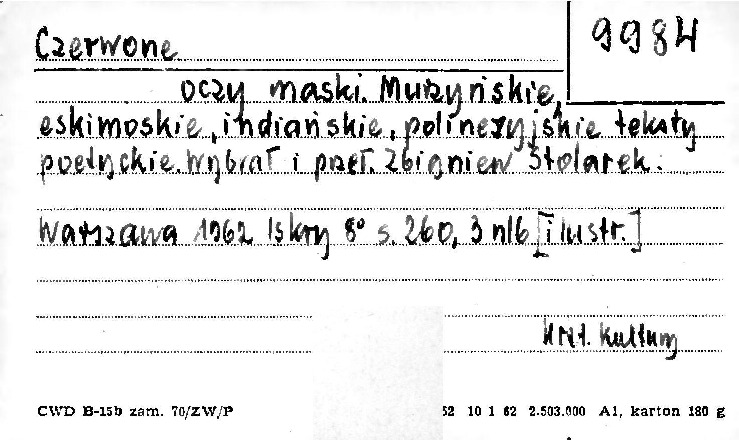 9984
Czerwone
oczy maski. Murzyńskie,
eskimoskie, indiańskie, polinezyjskie teksty
poetyckie. Wybrał i przeł. Zbigniew Stolarek.
Warszawa 1962 Iskry 8° s. 260, 3 nlb [ilustr.]
Hist. kultury
CWD B-15b zam. 70/ZW/P 52 10 1 62 2.503.000 A1, karton 180 g